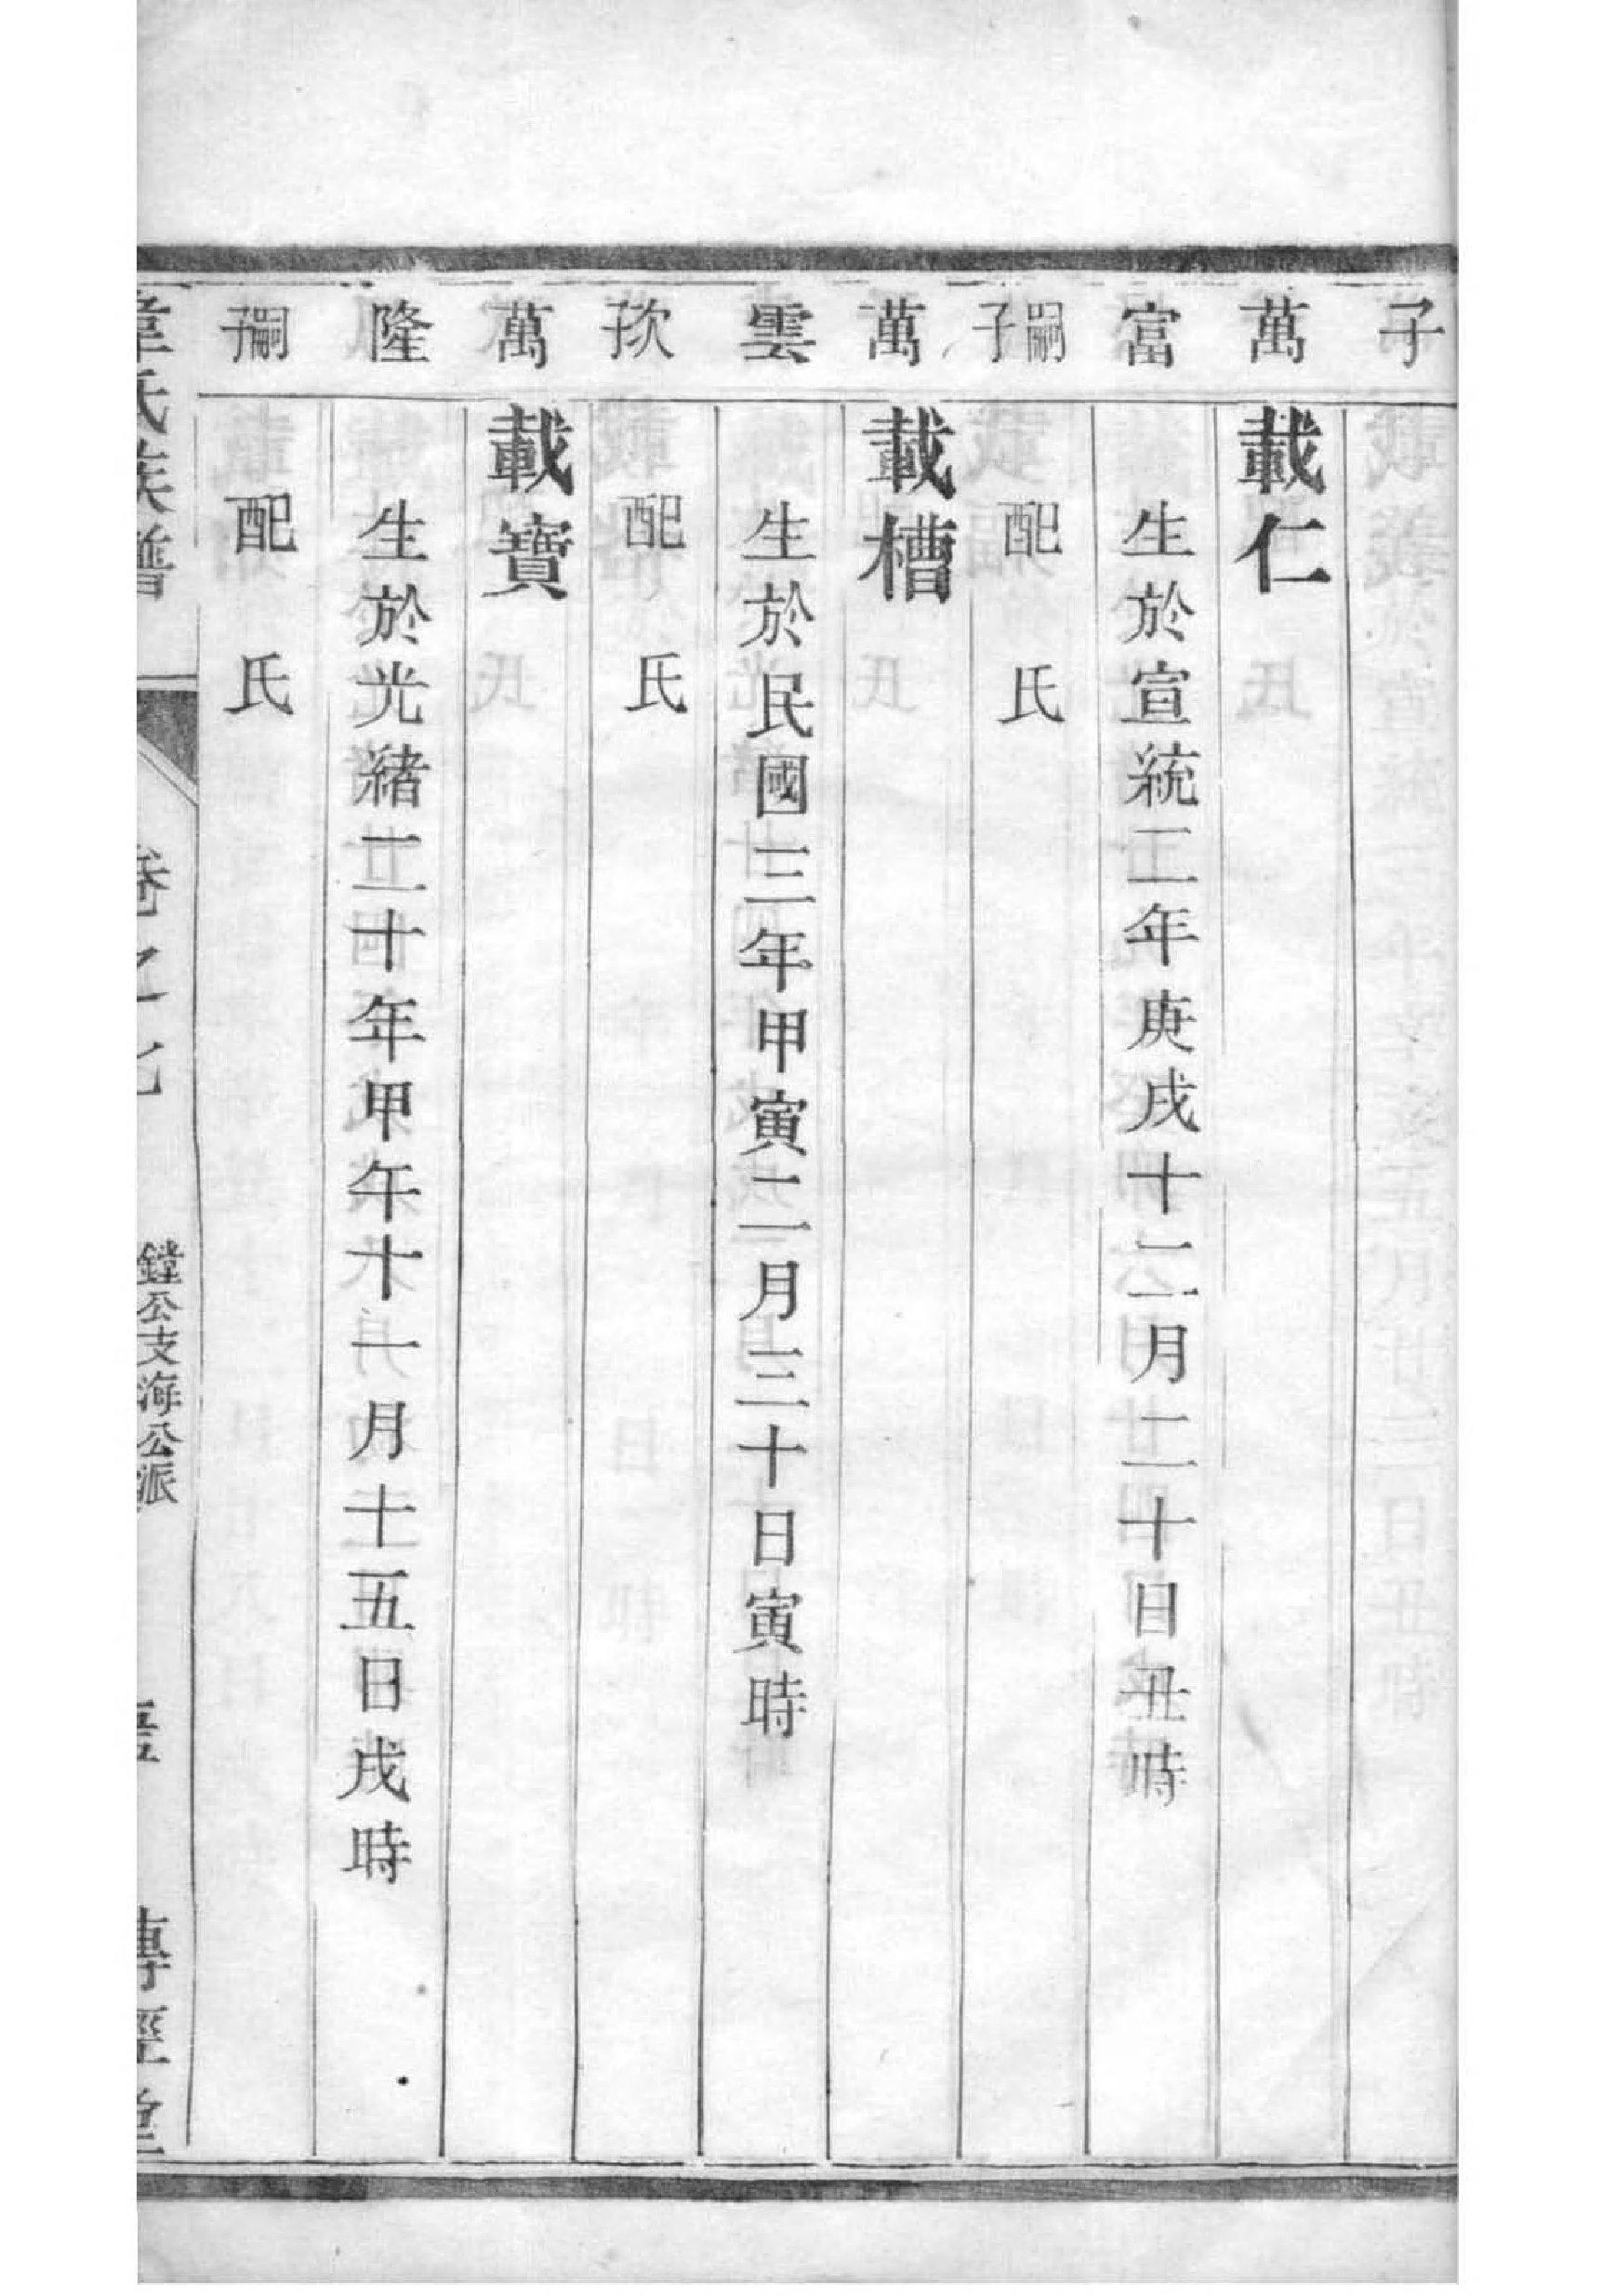 子
萬 載仁
富 生於宣統二年庚戌十二月二十日丑時
嗣子 配 氏
萬 載槽
雲 生於民國三年甲寅二月三十日寅時
次子 配 氏
萬 載寶
隆 生於光緒二十年甲午十一月十五日戌時
嗣子 配 氏
韋氏族譜 卷之 鏜公支海公派 傳經堂